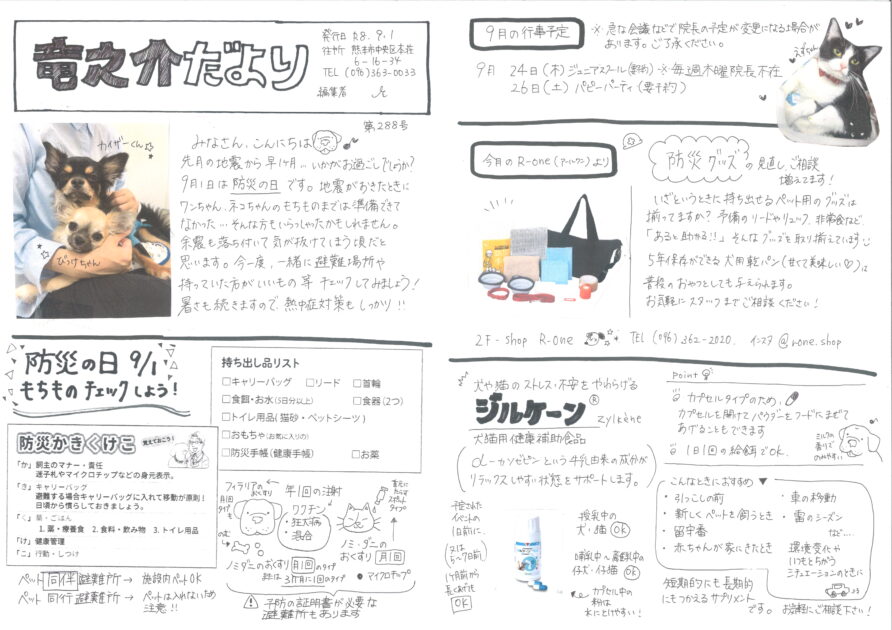 竜之介だより
発行日 R8.9.1
住所 熊本市中央区本荘
6-16-34
TEL (096)363-0033
編集者
第288号
カイザーくん
ぴっけちゃん
みなさん、こんにちは
先月の地震から早1ヶ月…いかがお過ごしでしょうか?
9月1日は防災の日です。地震がおきたときに
ワンちゃん、ネコちゃんのもちものまでは準備できて
なかった…そんな方もいらっしゃったかもしれません。
余震も落ち付いて気が抜けてしまう頃だと
思います。今一度、一緒に避難場所や
持っていた方がいいもの等チェックしてみましょう!
暑さも続きますので、熱中症対策もしっかり!!
防災の日 9/1
もちものチェックしよう!
持ち出し品リスト
□キャリーバッグ □リード □首輪
□食餌・お水(5日分以上) □食器(2つ)
□トイレ用品(猫砂・ペットシーツ)
□おもちゃ(お気に入りの)
□防災手帳(健康手帳) □お薬
防災かきくけこ
覚えておこう!
「か」飼主のマナー・責任
迷子札やマイクロチップなどの身元表示。
「き」キャリーバッグ
避難する場合キャリーバッグに入れて移動が原則!
日頃から慣らしておきましょう。
「く」薬・ごはん
1. 薬・療養食 2. 食料・飲み物 3. トイレ用品
「け」健康管理
「こ」行動・しつけ
ペット同伴避難所→施設内ペットOK
ペット同行避難所→ペットは入れないため
注意!!
フィラリアの
おくすり
月1回
年1回の注射
ワクチン
・狂犬病
・混合
首元に
たらす
スポット
タイプ
ノミ・ダニの
おくすり 月1回
ノミダニのおくすり 月1回のタイプ
または 3ヶ月に1回のタイプ
マイクロチップ
予防の証明書が必要な
避難所もあります
9月の行事予定
※急な会議などで院長の予定が変更になる場合が
あります。ご了承ください。
9月 24日(木)ジュニアスクール(要予約) ※毎週木曜院長不在
26日(土)パピーパーティ(要予約)
今月のR-one(アールワン)より
防災グッズの見直し、ご相談
増えてます!
いざというときに持ち出せるペット用のグッズは
揃ってますか?予備のリードやリュック、非常食など、
「あると助かる!!」そんなグッズを取り揃えています
5年保存ができる犬用乾パン(甘くて美味しい♡)は
普段のおやつとしても与えられます。
お気軽にスタッフまでご相談ください!
2F-shop R-one TEL (096)362-2020. インスタ @r.one.shop
犬や猫のストレス・不安をやわらげる
ジルケーン® zylkène
犬猫用健康補助食品
α-カソゼピンという牛乳由来の成分が
リラックスしやすい状態をサポートします。
予定された
イベントの
1日前に、
(又は
5~7日前)
1ヶ月前から
長くあげても
OK
授乳中の
犬・猫 OK
哺乳中~離乳中の
仔犬・仔猫 OK
カプセル中の
粉は
水にとけやすい!
Point
カプセルタイプのため、
カプセルを開けてパウダーをフードにまぜて
あげることもできます
1日1回の給餌でOK.
ミルクの
香りで
のみやすい
こんなときにおすすめ▼
・引っこしの前
・新しくペットを飼うとき
・留守番
・赤ちゃんが家にきたとき
・車の移動
・雷のシーズン
など…
環境変化や
いつもとちがう
シチュエーションのときに
短期的にも長期的
にもつかえるサプリメント
です。お気軽にご相談下さい!